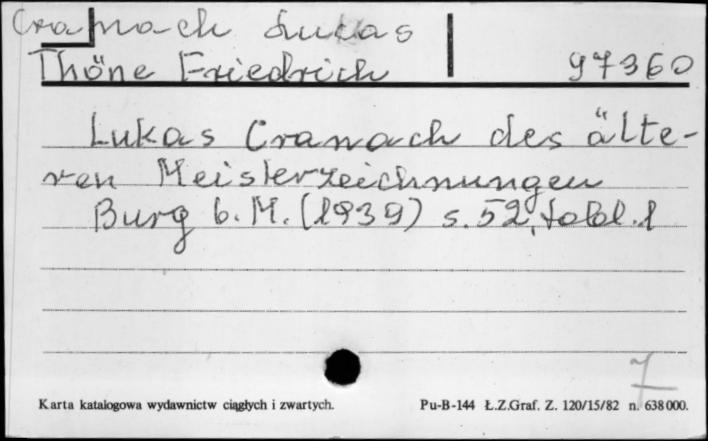 Cranach Lukas
Thöne Friedrich 97360
Lukas Cranach des älte-
ren Meisterzeichnungen
Burg b. M. (1939) s. 52, tabl. 1
7
Karta katalogowa wydawnictw ciągłych i zwartych. Pu-B-144 Ł.Z.Graf. Z. 120/15/82 n. 638000.